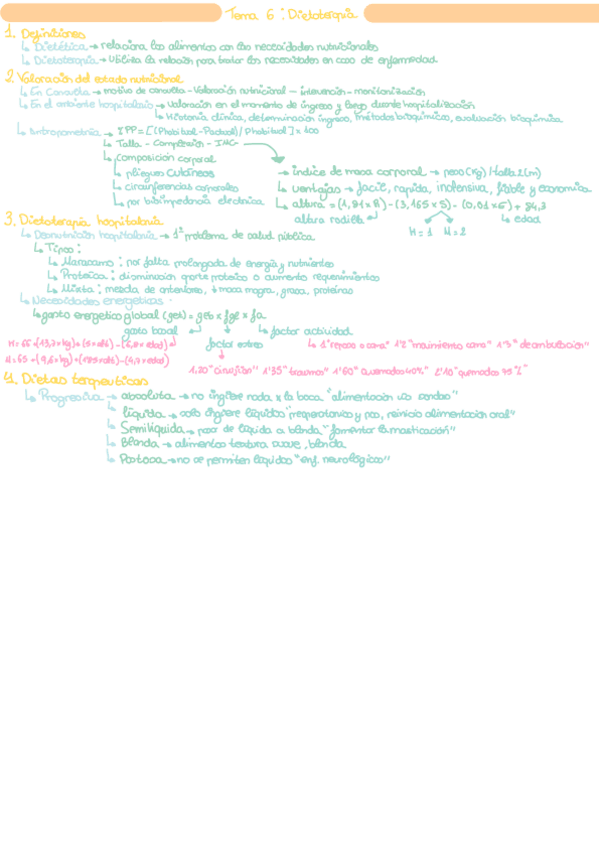 Tema 6: Dietoterapia
1. Definiciones
↳ Dietética → relaciona los alimentos con las necesidades nutricionales
↳ Dietoterapia → utiliza la relación para tratar las necesidades en caso de enfermedad.
2. Valoración del estado nutricional
↳ En Consulta → motivo de consulta - Valoración nutricional - intervención - monitorización
↳ En el ambiente hospitalario → Valoración en el momento de ingreso y luego durante hospitalización
↳ Historia clínica, determinación ingreso, métodos bioquímicos, evaluación bioquímica
↳ antropometría → %PP = [(Phabitual - Pactual) / Phabitual] x 100
↳ Talla - Complexión - IMC
↳ composición corporal → índice de masa corporal → peso (Kg) / talla2 (m)
↳ pliegues cutáneos
↳ circunferencias corporales ↳ ventajas → fácil, rápida, inofensiva, fiable y economica
↳ por bioimpedancia electrónica ↳ altura = (1,91 x R) - (3,165 x S) - (0,01 x E) + 84,3
altura rodilla ↳ edad
H = 1 M = 2
3. Dietoterapia hospitalaria
↳ Desnutrición hospitalaria → 1º problema de salud pública.
↳ Tipos:
↳ Marasmo: por falta prolongada de energía y nutrientes
↳ Proteica: disminución aporte proteico o aumento requerimientos
↳ Mixta: mezcla de anteriores, ↓ masa magra, grasa, proteínas
↳ Necesidades energéticas
↳ gasto energético global (get) = geb x fge x fa
gasto basal ↳ factor actividad
H = 66 + (13,7 x kg) + (5 x alt) - (6,8 x edad) factor estres ↳ 1 "reposo o cama" 1'2 "movimiento cama" 1'3 "deambulación"
M = 65 + (9,6 x kg) + (1'85 x alt) - (4,7 x edad)
1,20 "cirugías" 1'35 "traumas" 1'60 "quemados 40%" 2'10 "quemados 95%"
4. Dietas terapeuticas
↳ Progresiva → absoluta → no ingiere nada x la boca "alimentación sondas"
↳ líquida → solo ingiere líquidos "preoperatorios y pos, reinicio alimentación oral"
↳ Semilíquida → pasar de líquida a blanda "fomentar la masticación"
↳ Blanda → alimentos textura suave, blanda
↳ Pastosa → no se permiten líquidos "enf. neurológicas"